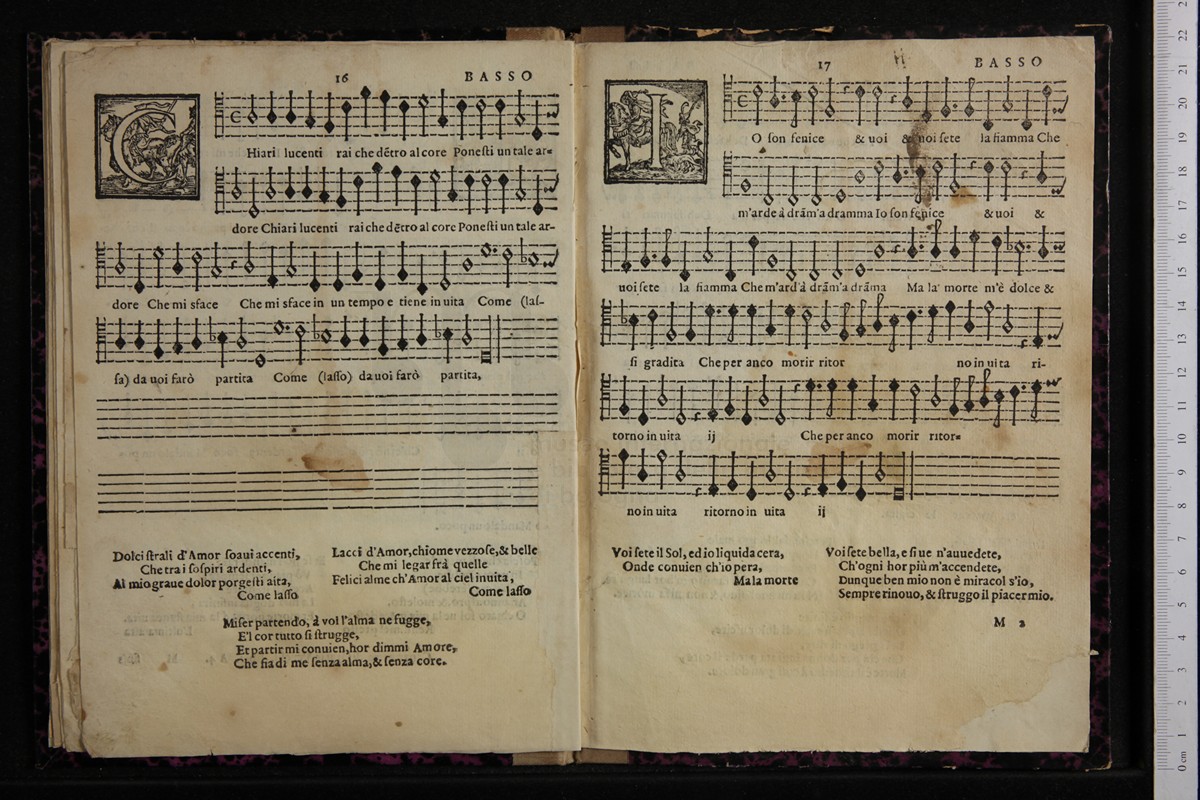 16 BASSO
C
Hiari lucenti rai che dẽtro al core Ponesti un tale ar=
dore Chiari lucenti rai che dẽtro al core Ponesti un tale ar-
dore Che mi sface Che mi sface in un tempo e tiene in uita Come (las-
sa) da uoi farò partita Come (lasso) da uoi farò partita,
Dolci strali d'Amor soaui accenti,
Che tra i sospiri ardenti,
Al mio graue dolor porgesti aita,
Come lasso
Lacci d'Amor, chiome vezzose, & belle
Che mi legar frà quelle
Felici alme ch'Amor al ciel inuita,
Come lasso
Miser partendo, à voi l'alma ne fugge,
E'l cor tutto si strugge,
Et partir mi conuien, hor dimmi Amore,
Che fia di me senza alma, & senza core.
17 BASSO
I
O son fenice & uoi & uoi sete la fiamma Che
m'arde à drãm'a dramma Io son fenice & uoi &
uoi sete la fiamma Che m'ard'à drãm'a drãma Ma la' morte m'è dolce &
si gradita Che per anco morir ritor no in uita ri-
torno in uita ij Che per anco morir ritor=
no in uita ritorno in uita ij
Voi sete il Sol, ed io liquida cera,
Onde conuien ch'io pera,
Ma la morte
Voi sete bella, e si ue n'auuedete,
Ch'ogni hor più m'accendete,
Dunque ben mio non è miracol s'io,
Sempre rinouo, & struggo il piacer mio.
M 2